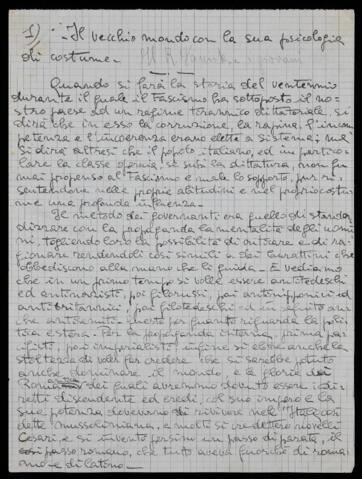 1) :- Il vecchio mondo con la sua psicologia
di costume.-
Quando si farà la storia del ventennio
durante il quale il Fascismo ha sottoposto il no=
stro paese ad un regime tirannico dittatoriale, si
dirà che in esso la corruzione, la rapina, l'incom
petenza e l'incoerenza erano elette a sistema; ma
si dirà altresì che il popolo italiano, ed in partico=
lare la classe operaia, se subì la dittatura, non fu
mai propenso al Fascismo e male lo sopportò, pur ri=
sentendone nelle proprie abitudini e nel proprio costu=
me una profonda influenza.-
Il metodo dei governanti era quello di standar
dizzare con la propaganda la mentalità degli uomi
ni, togliendo loro la possibilità di criticare e di ra=
gionare rendendoli così simili a dei burattini che
obbediscono alla mano che li guida.- E vediamo
che in un primo tempo si volle essere antitedeschi
ed antinazisti, poi filorussi, poi antinipponici ed
antibritannici, poi filotedeschi ed in seguito an
che antisemiti. Questo per quanto riguarda la poli
tica estera. Per la propaganda interna, prima paci
fisti, poi imperialisti, infine si ebbe anche la
stoltezza di voler far credere che si sarebbe potuto
anche dominare il mondo, e le glorie dei
Romani dei quali avremmo dovuto essere i di=
retti discendenti ed eredi, col suo impero e la
sua potenza dovevano rivivere nell'
dette mussoliniana, e molti si credettero novelli
Cesari, e si inventò persino un passo di parata, il
passo romano, che tutto aveva fuorchè di roma
no e di latino.-